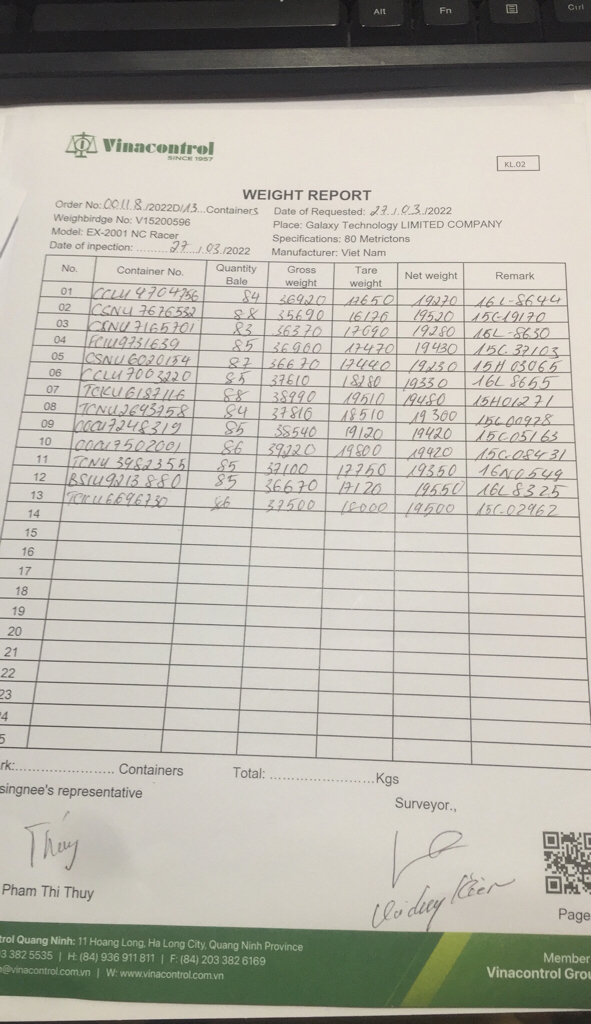 Alt
Fn
Ctrl
Vinacontrol
SINCE 1957
KL.02
WEIGHT REPORT
Order No: 00118/2022D/13 Containers Date of Requested: 27/03/2022
Weighbirdge No: V15200596 Place: Galaxy Technology LIMITED COMPANY
Model: EX-2001 NC Racer Specifications: 80 Metrictons
Date of inpection: ..........27../03/2022 Manufacturer: Viet Nam
No. Container No. Quantity Bale Gross weight Tare weight Net weight Remark
01 CCLU 4704756 84 36920 17650 19270 16L-8644
02 CSNU 7676532 88 35690 16170 19520 15C-19170
03 CSNU7165701 83 36370 17090 19280 16L-8630
04 FCIU9731639 85 36900 17470 19430 15C 37103
05 CSNU6020154 87 36670 17440 19230 15H 03065
06 CCLU7003220 85 37610 18280 19330 16L 8655
07 TCKU6187116 88 38990 19510 19480 15H01271
08 TCNU2643758 84 37810 18510 19300 15C00978
09 OOCU7248319 85 38540 19120 19420 15C05163
10 OOCU7502001 86 39220 19800 19420 15C-08431
11 TCNU 3982355 85 37100 17750 19350 16N0549
12 BSIU9213880 85 36670 17120 19550 16L8325
13 TCKU6696730 86 37500 18000 19500 15C-02962
14
15
16
17
18
19
20
21
22
23
4
5
rk:........................ Containers Total: ........................Kgs
singnee's representative Surveyor.,
Thúy
Pham Thi Thuy
Page
trol Quang Ninh: 11 Hoang Long, Ha Long City, Quang Ninh Province
3 382 5535 | H: (84) 936 911 811 | F: (84) 203 382 6169
@vinacontrol.com.vn | W: www.vinacontrol.com.vn
Member
Vinacontrol Grou